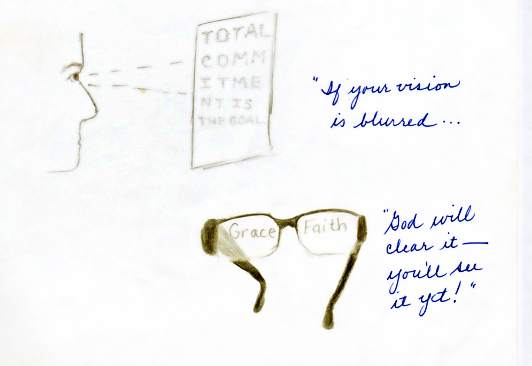 TOTAL
COMM
ITME
NT IS
THE GOAL
"If your vision
is blurred...
Grace Faith
"God will
clear it—
you'll see
it yet!"